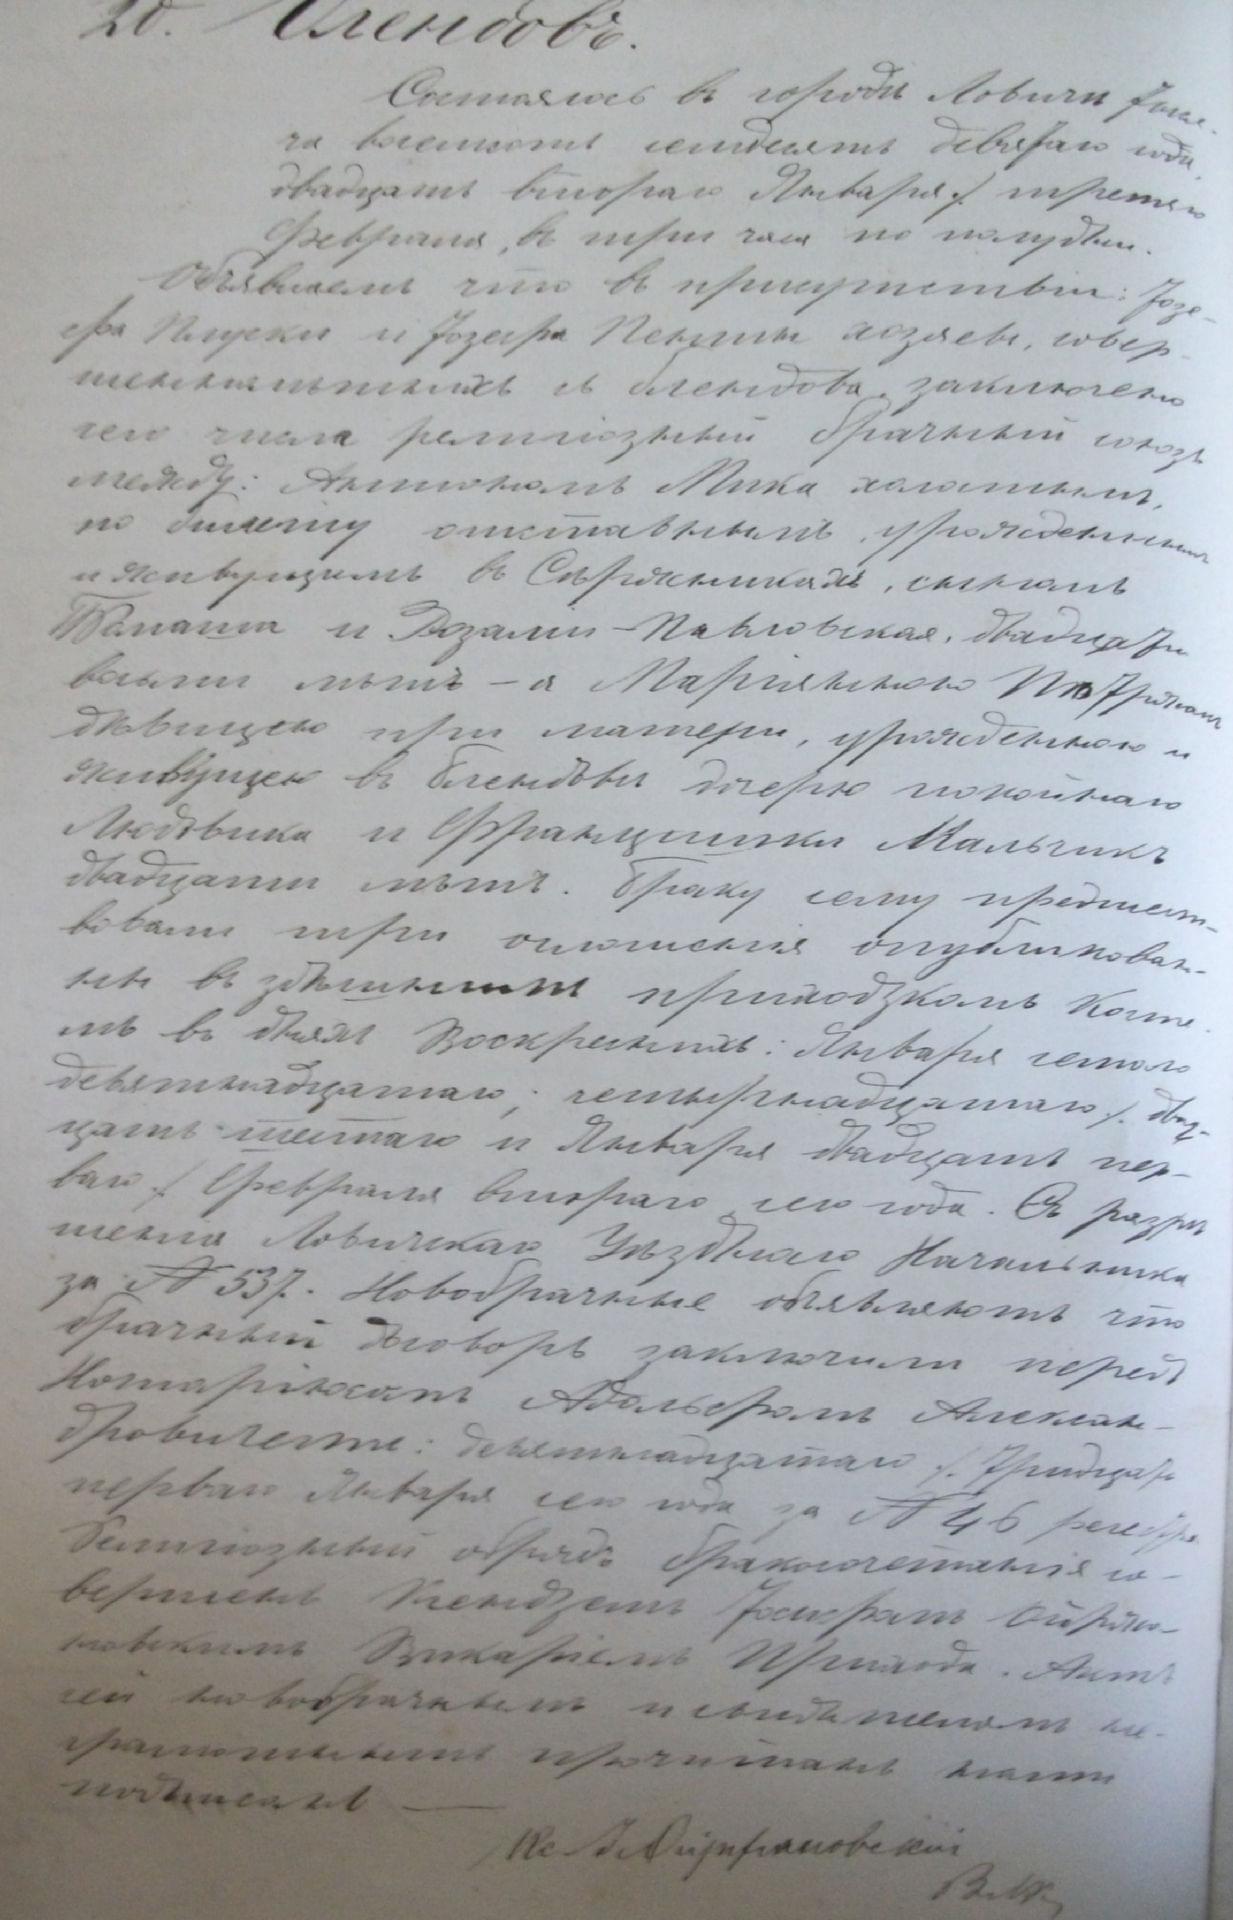 20. Блендовъ.
Состоялось въ городѣ Ловичи Тыся-
ча восемьсотъ семдесятъ девятаго года,
двадцать втораго Января /. третяго
Февраля, въ три часа по полудни.
Объявляемъ что въ присутствіи: Іозе-
фа Плуски и Іозефа хозяевъ, совер-
шеннолѣтнихъ съ Блендова, заключено
сего числа религіозный брачный союзъ
между: Антономъ Мика холостымъ,
по билету отставнымъ, урожденнымъ
и живущимъ въ сыномъ
и Розаліи Павловская, двадцати
восьми лѣтъ – а Маріянною
дѣвицею при матери, урожденною и
живущею въ Блендовѣ дочерю покойнаго
Людвика и Францишки Мальчикъ
двадцати лѣтъ. Браку сему предшест-
вовали три оглашенія опубликован-
ны въ здѣшнемъ приходзкомъ Косте-
лѣ въ дняхъ Воскресныхъ: Января седмого
девятнадцатаго; четырнадцатаго /. двад-
цать шестаго и Января двадцать пер-
ваго /. Февраля втораго сего года. Съ разрѣ
шенія Ловичскаго Уѣзднаго Начальника
за № 537. Новобрачные объявляютъ что
брачный договоръ заключили передъ
Нотаріюсомъ Адольфомъ Алексан-
дровичемъ: девятнадцатаго /. тридцать
перваго Января сего года за № 46
Религіозный обрядъ бракосочетанія со-
вершенъ Ксендземъ Іосифомъ
Викаріемъ Прихода. Актъ
сей новобрачнымъ и свидѣтелямъ не-
грамотнымъ прочитанъ нами
подписанъ —
Кс. І.